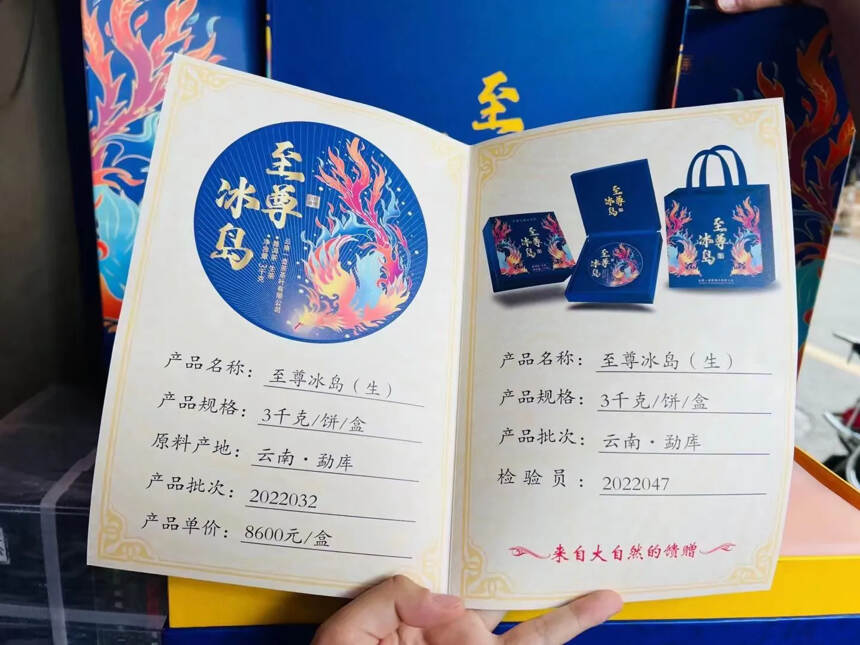 至
至尊
冰岛
云南一壶茶茶叶有限公司
普洱茶·生茶
净含量:3千克
产品名称: 至尊冰岛(生)
产品规格: 3千克/饼/盒
原料产地: 云南·勐库
产品批次: 2022032
产品单价: 8600元/盒
至尊
冰岛
至尊
冰岛
至尊
冰岛
产品名称: 至尊冰岛(生)
产品规格: 3千克/饼/盒
产品批次: 云南·勐库
检验员: 2022047
来自大自然的馈赠